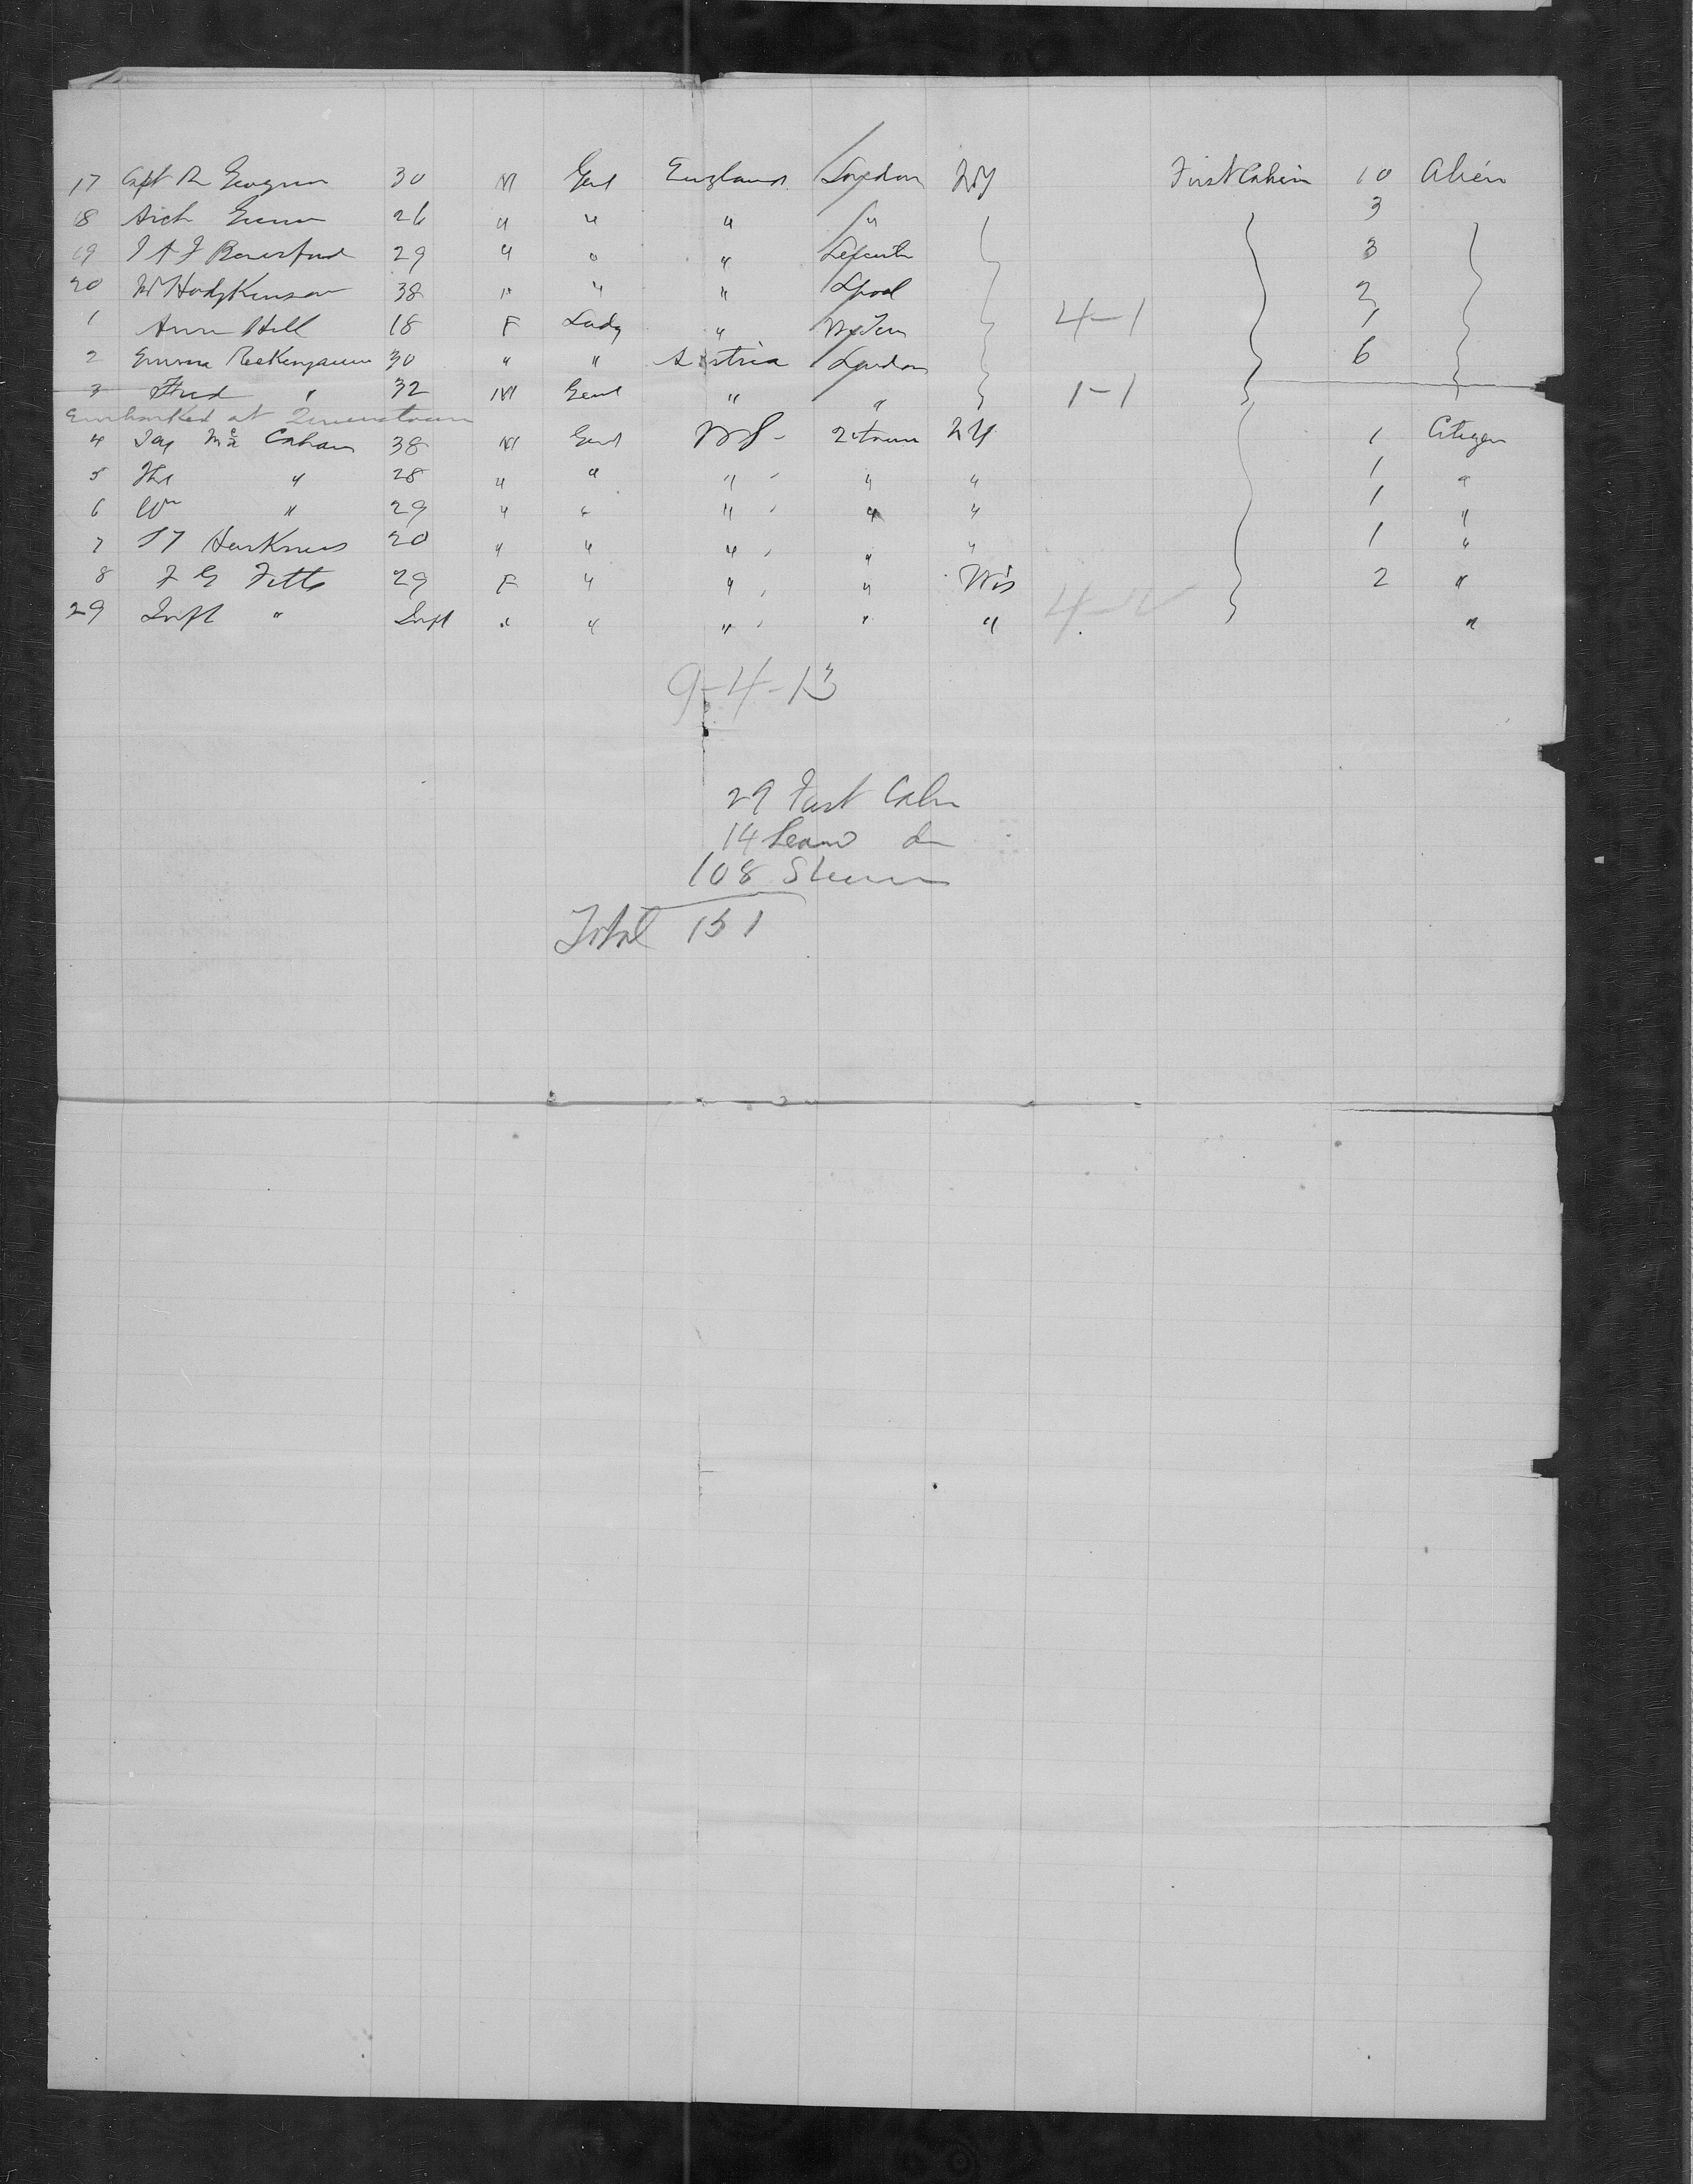 17 Capt R 30 M Gent England London NY First Cabin 10 Alien
18 Arch 26 " " " " 3
19 J A F Beresford 29 " " " 3
20 W Hodgkinson 38 " " " Lpool 2
1 Ann Hill 18 F Lady " 4-1 1
2 Emma 30 " " Austria London 6
3 Fred " 32 M Gent " " 1-1
Embarked at Queenstown
4 Jas Mc Cahan 38 M Gent US - Qtown NY 1 Citizen
5 Thos " 28 " " " " " 1 "
6 Wm " 29 " " " " " 1 "
7 S T Harkness 20 " " " " " 1 "
8 F G Fitts 29 F " " " Wis 2 "
29 Inft " Inft " " " " " 4- "
9-4-13
29 First Cabn
14 Second do
108 Steerage
Total 151